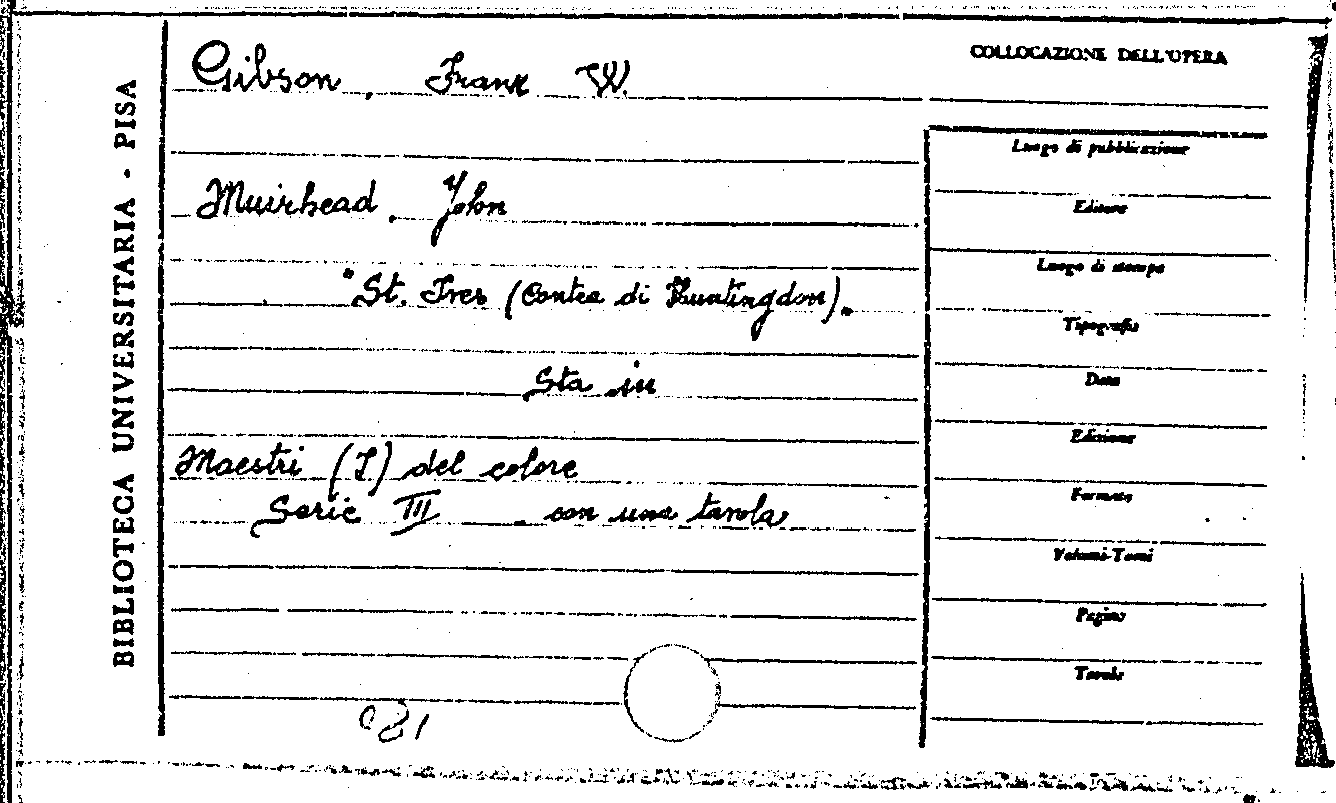 BIBLIOTECA UNIVERSITARIA - PISA
Gibson, Frank W.
Muirhead, John
"St. Ives (Contea di Huntingdon)."
Sta in
Maestri (I) del colore
Serie III con una tavola
COLLOCAZIONE DELL'OPERA
Luogo di pubblicazione
Editore
Luogo di stampa
Tipografia
Data
Edizione
Formato
Volumi-Tomi
Pagine
Tavole